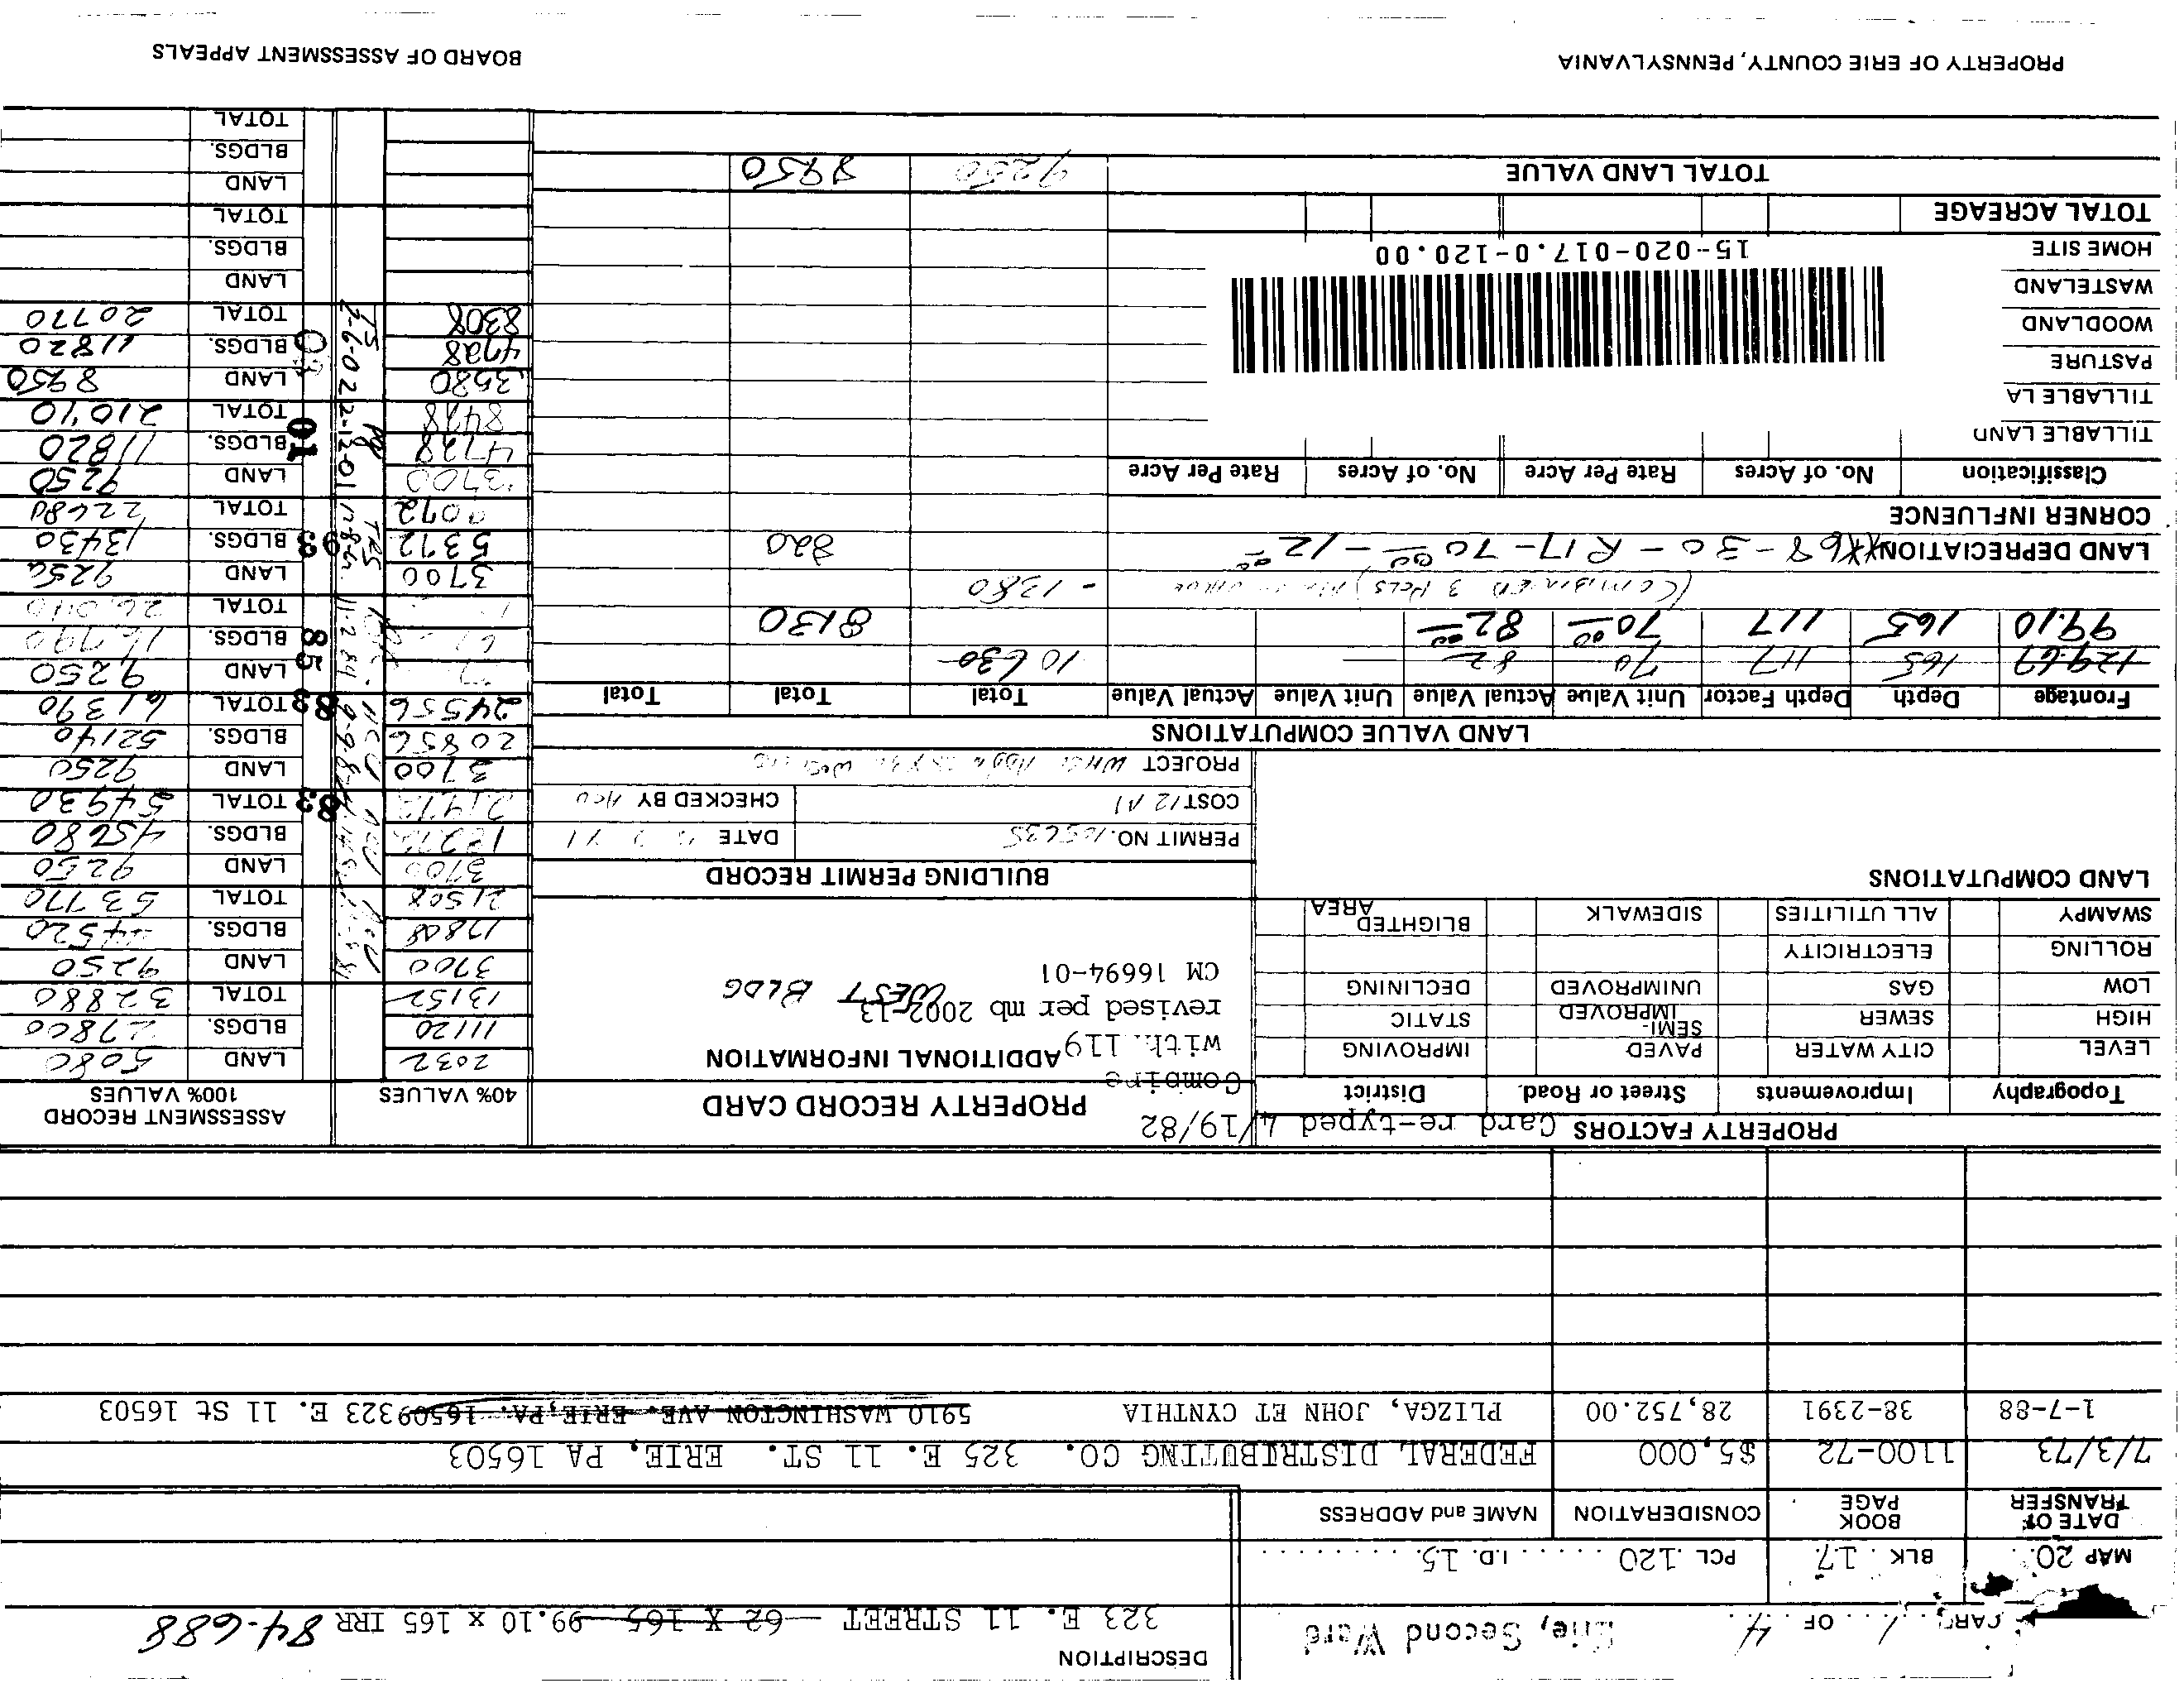 CARD 1 OF 4 Erie, Second Ward
DESCRIPTION
323 E. 11 STREET 62 X 165 99.10 x 165 IRR 84-688
MAP 20 BLK. 17 PCL 120 I.D. 15
DATE OF TRANSFER BOOK PAGE CONSIDERATION NAME and ADDRESS
7/3/73 1100-72 $5,000 FEDERAL DISTRIBUTING CO. 325 E. 11 ST. ERIE, PA 16503
1-7-88 38-2391 28,752.00 PLIZGA, JOHN ET CYNTHIA 5910 WASHINGTON AVE. ERIE, PA. 16509 323 E. 11 St 16503
PROPERTY FACTORS Card re-typed 4/19/82
Topography Improvements Street or Road. District
LEVEL CITY WATER PAVED IMPROVING
HIGH SEWER SEMI-IMPROVED STATIC
LOW GAS UNIMPROVED DECLINING
ROLLING ELECTRICITY
SWAMPY ALL UTILITIES SIDEWALK BLIGHTED AREA
LAND COMPUTATIONS
PROPERTY RECORD CARD
Combine
with 119 ADDITIONAL INFORMATION
revised per mb 2002-13 WEST BLDG
CM 16694-01
BUILDING PERMIT RECORD
PERMIT NO. DATE
COST CHECKED BY
PROJECT
40% VALUES ASSESSMENT RECORD 100% VALUES
2032 LAND 5080
11120 BLDGS. 27800
13152 TOTAL 32880
3700 LAND 9250
17808 BLDGS. 44520
21508 TOTAL 53770
3700 LAND 9250
18272 BLDGS. 45680
21972 TOTAL 83 54930
3700 LAND 9250
20856 BLDGS. 52140
24556 TOTAL 83 61390
LAND 85 9250
BLDGS. 16790
TOTAL 26040
3700 LAND 9250
5372 BLDGS. 93 13430
9072 TOTAL 22680
3700 LAND 9250
4728 BLDGS. 01 11820
8428 TOTAL 21070
3580 LAND 8950
4728 BLDGS. 11820
8308 TOTAL 20770
LAND
BLDGS.
TOTAL
LAND
BLDGS.
TOTAL
LAND VALUE COMPUTATIONS
Frontage Depth Depth Factor Unit Value Actual Value Unit Value Actual Value Total Total Total
129.67 165 117 70 82 10630
99.10 165 117 70.00 82.00 8130
(COMBINED 3 PCLS) - 1380
LAND DEPRECIATION **68-30-R17-70.00-12.00 820
CORNER INFLUENCE
Classification No. of Acres Rate Per Acre No. of Acres Rate Per Acre
TILLABLE LAND
TILLABLE LA
PASTURE
WOODLAND
WASTELAND
HOME SITE 15-020-017.0-120.00
TOTAL ACREAGE
TOTAL LAND VALUE 9250 8950
PROPERTY OF ERIE COUNTY, PENNSYLVANIA BOARD OF ASSESSMENT APPEALS